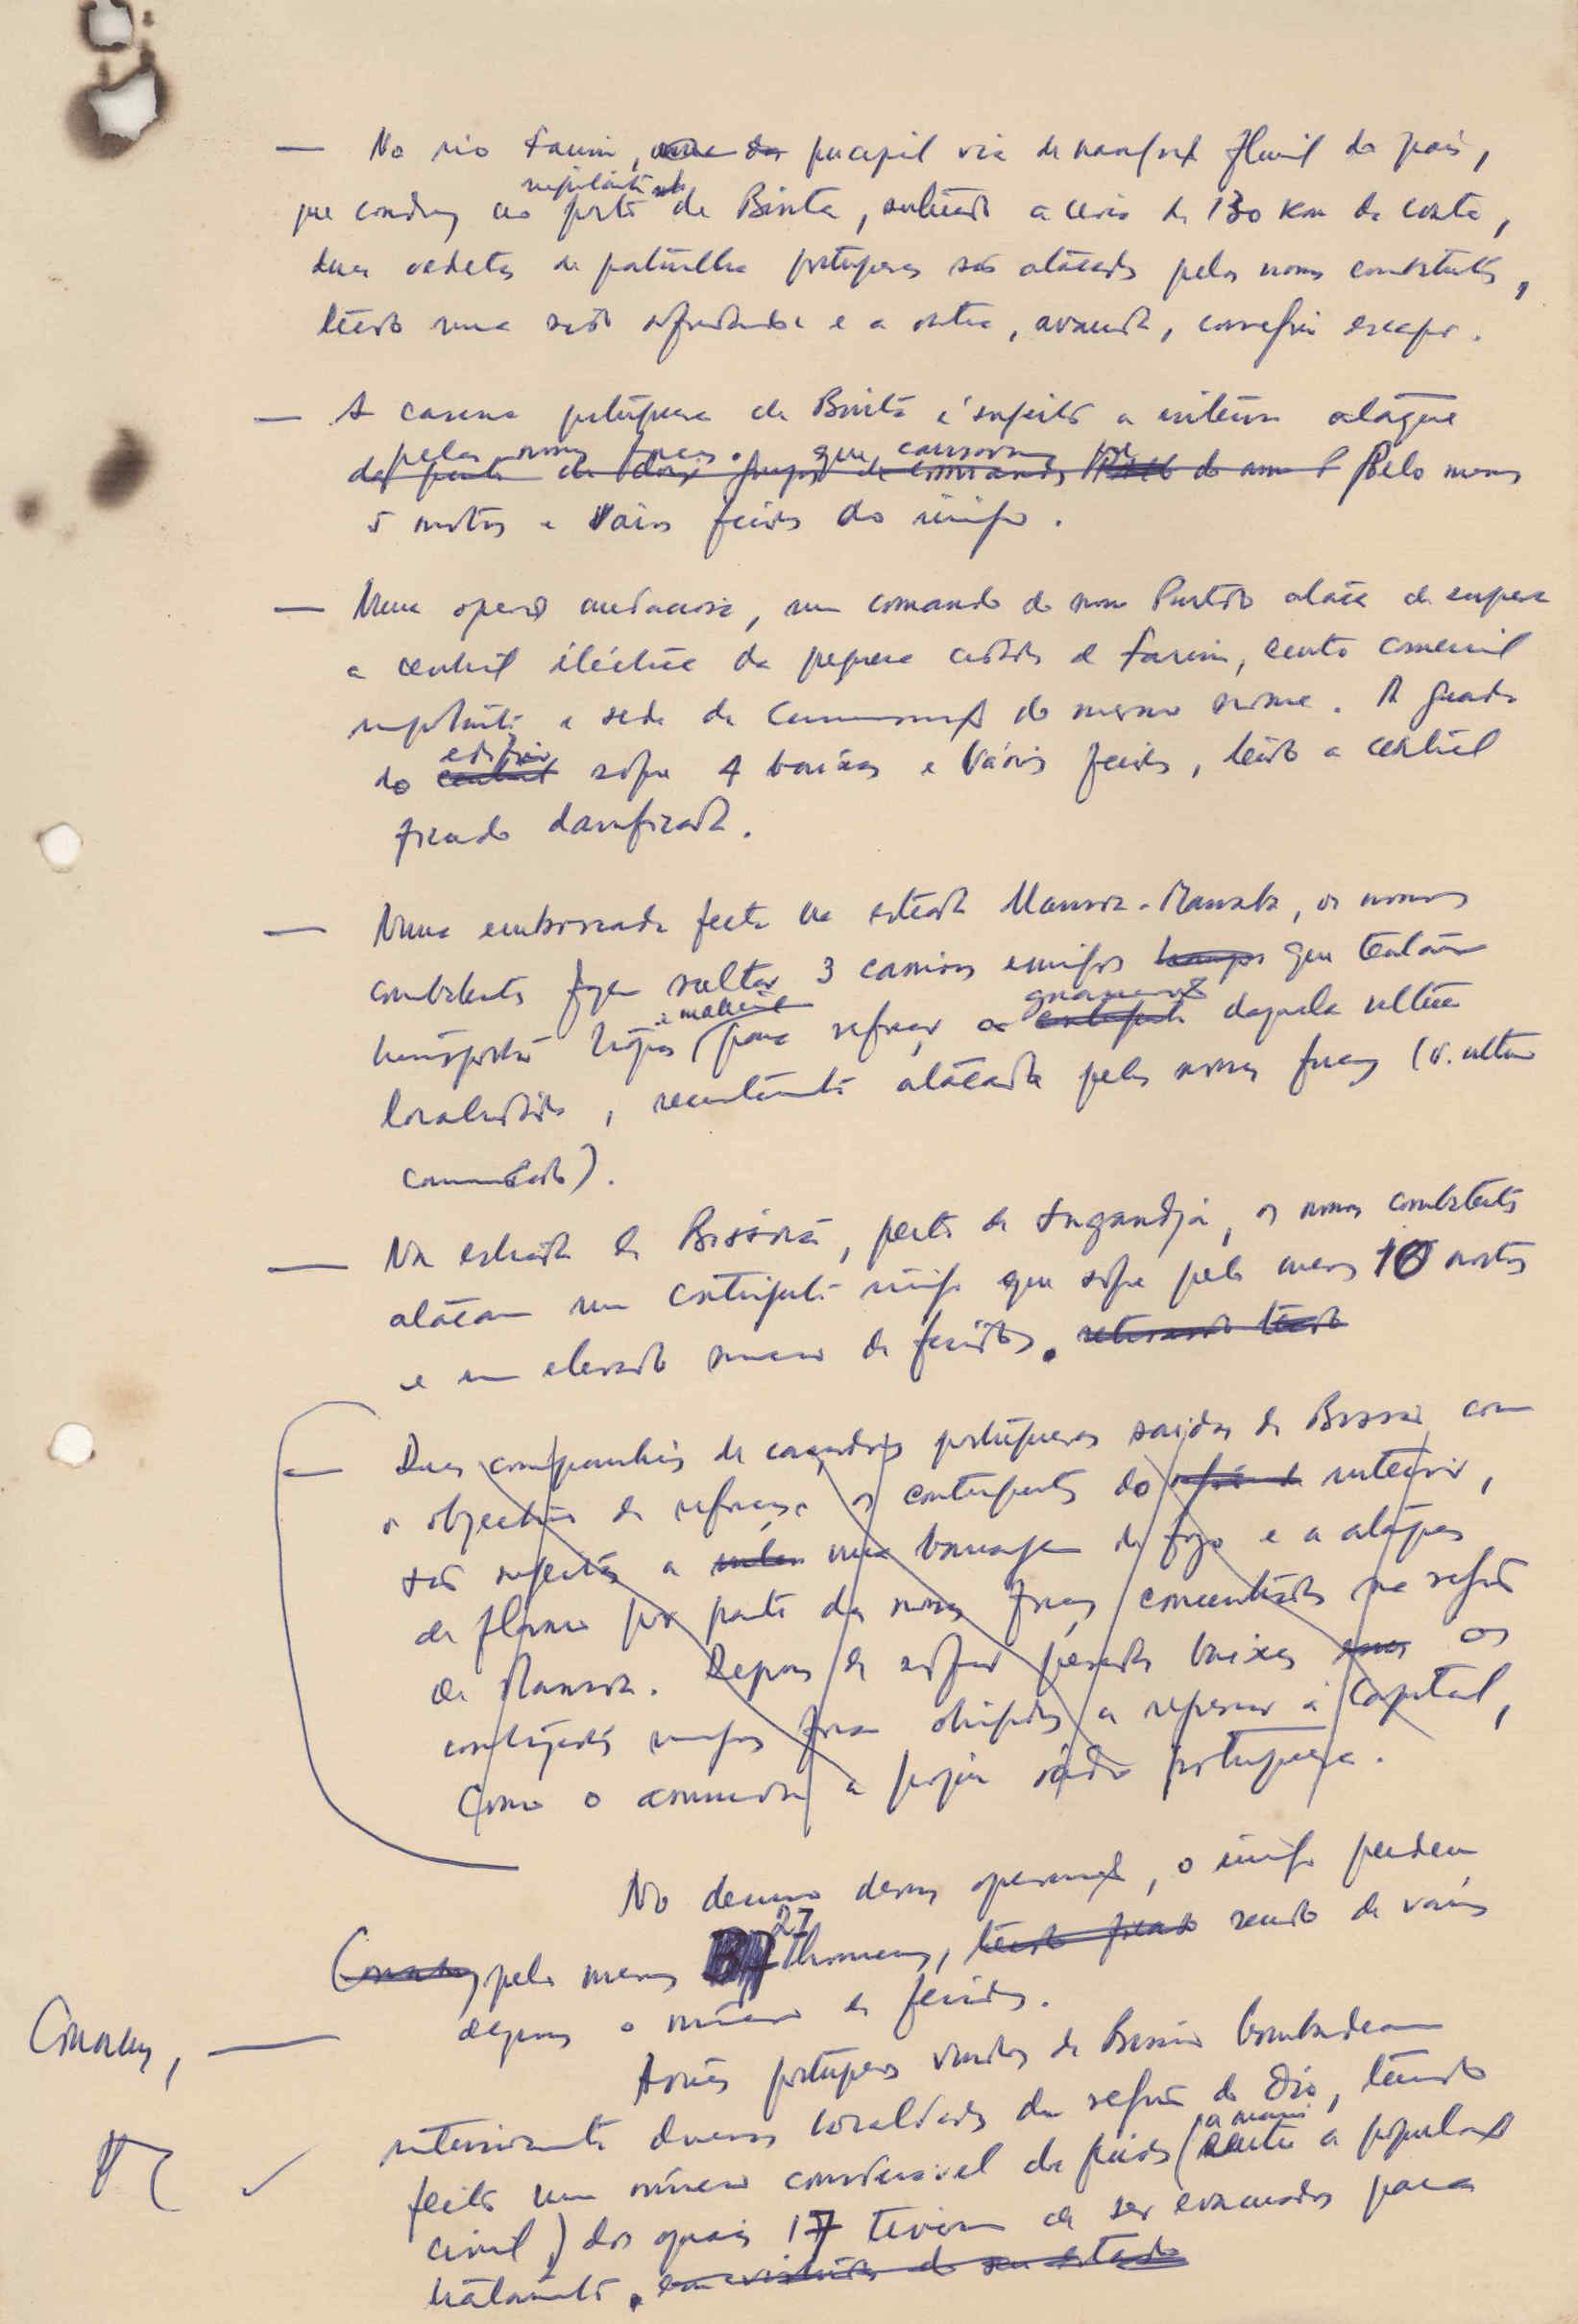 — No rio Farim, principal via de transport fluvial do país,
que conduz ao porto de Binta, situado a cerca de 130 km da costa,
duas vedetas de patrulha portuguesas são atacadas pelos nossos combatentes,
tendo uma sido afundada e a outra, avariada, conseguiu escapar.
— A caserna portuguesa de Binta é sujeita a intenso ataque
pelas nossas forças. que causaram pelo menos
5 mortos e vários feridos ao inimigo.
— Numa operação audaciosa, um comando do nosso Partido ataca de surpresa
a central eléctrica da pequena cidade de Farim, centro comercial
importante e sede da do mesmo nome. A guarda
do edifício sofre 4 baixas e vários feridos, tendo a central
ficado danificada.
— Numa emboscada feita na estrada Mansoa-Mansaba, os nossos
combatentes fazem saltar 3 camiões inimigos que tentavam
transportar tropas e material para reforçar a guarnição daquela última
localidade, recentemente atacada pelas nossas forças (v. último
comunicado).
— Na estrada de Bissorã, perto de , os nossos combatentes
atacam um contingente inimigo que sofre pelo menos 10 mortos
e um elevado número de feridos.
— Duas companhias de caçadores portugueses saídas de Bissau, com
o objectivo de reforçar os contingentes do interior,
são sujeitas a uma barragem de fogo e a ataques
de flanco por parte das nossas forças concentradas na região
de Mansoa. Depois de sofrer pesadas baixas os
contingentes inimigos foram obrigados a regressar à capital,
como o anunciou a própria rádio portuguesa.
No decurso dessas operações, o inimigo perdeu
pelo menos 27 homens, sendo de vários
o número de feridos.
Conakry, — Aviões portugueses vindos de Bissau bombardearam
intensivamente diversas localidades da região do Oio, tendo
feito um número considerável de feridos (a maioria entre a população
civil) dos quais 17 tiveram de ser evacuados para
tratamento.